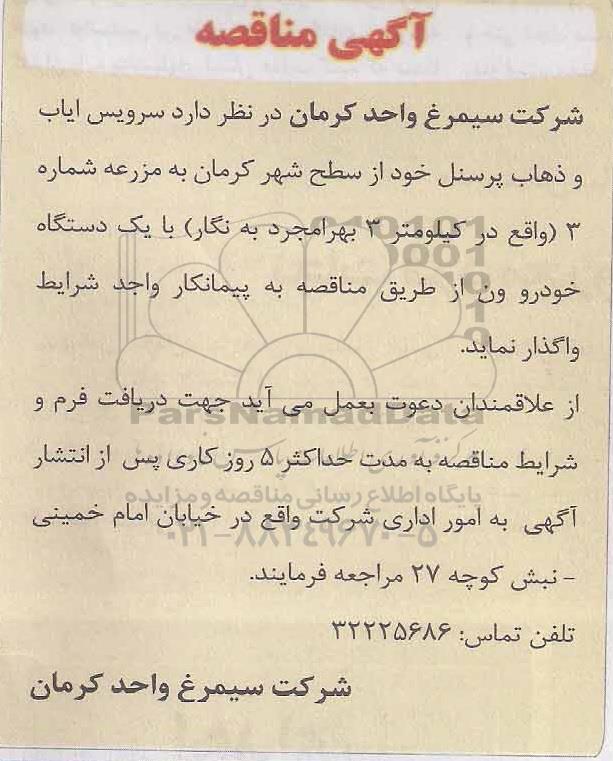 آگهی مناقصه
شرکت سیمرغ واحد کرمان در نظر دارد سرویس ایاب
و ذهاب پرسنل خود از سطح شهر کرمان به مزرعه شماره
۳ (واقع در کیلومتر ۳ بهرامجرد به نگار) با یک دستگاه
خودرو ون از طریق مناقصه به پیمانکار واجد شرایط
واگذار نماید.
از علاقمندان دعوت بعمل می آید جهت دریافت فرم و
ParsNamadData
شرایط مناقصه به مدت حداکثر ۵ روز کاری پس از انتشار
پایگاه اطلاع رسانی مناقصه و مزایده
آگهی به امور اداری شرکت واقع در خیابان امام خمینی
۰۲۱-۸۸۳۴۹۶۷۰-۵
- نبش کوچه ۲۷ مراجعه فرمایند.
تلفن تماس: ۳۲۲۲۵۶۸۶
شرکت سیمرغ واحد کرمان